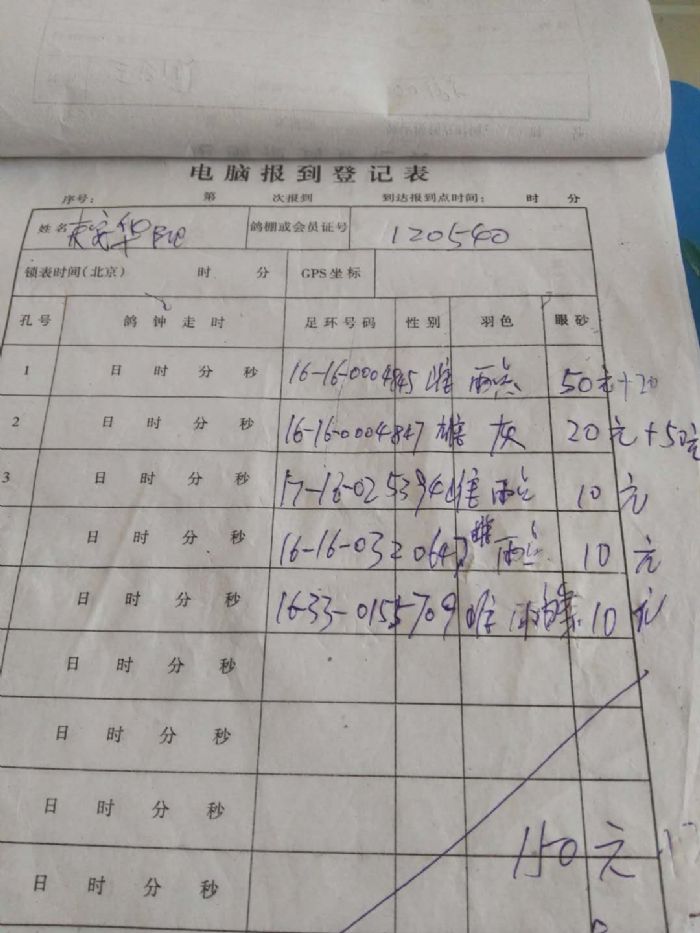 电脑报到登记表
序号： 第 次报到 到达报到点时间： 时 分
姓名 华 鸽棚或会员证号 120540
锁表时间（北京） 时 分 GPS坐标
孔号 鸽钟走时 足环号码 性别 羽色 眼砂
1 日 时 分 秒 16-16-0004845 雌 雨点 50元+20
2 日 时 分 秒 16-16-0004847 雄 灰 20元+50元
3 日 时 分 秒 17-16-025394 雌 雨点 10元
日 时 分 秒 16-16-0320647 雄 雨点 10元
日 时 分 秒 16-33-0155709 雌 10元
日 时 分 秒
日 时 分 秒
日 时 分 秒
日 时 分 秒
150元